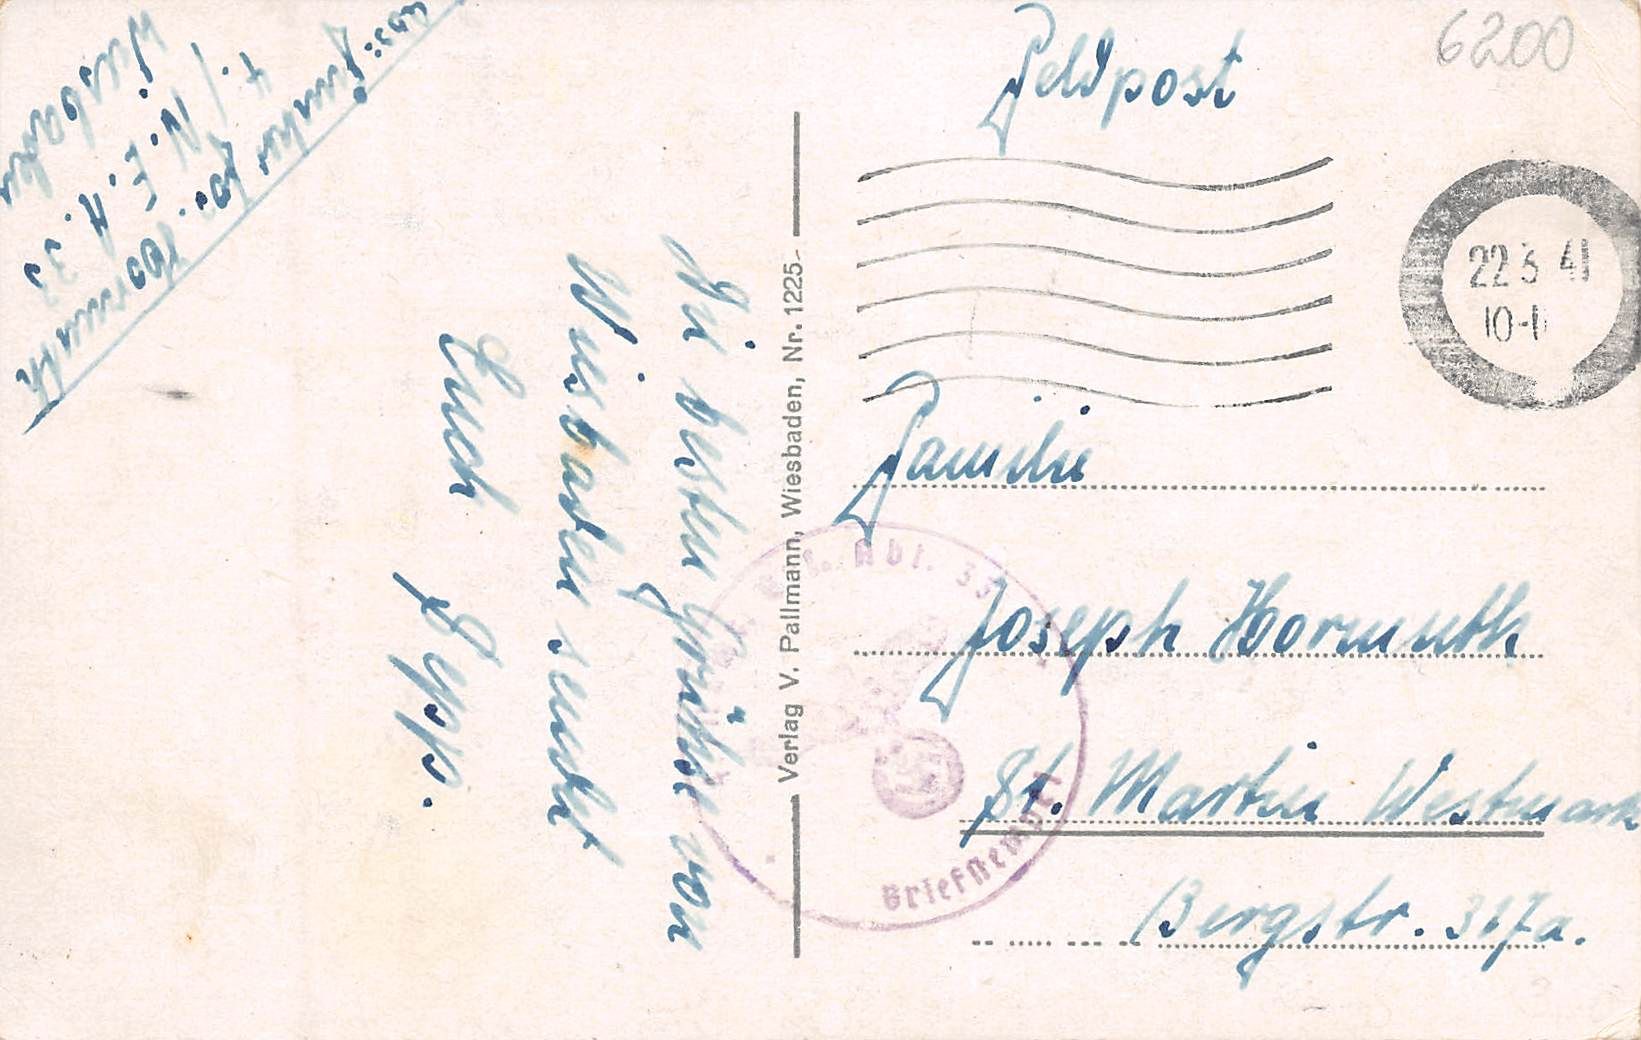 Feldpost
6200
22 3 41
10-1
Familie
Joseph Hormuth
St. Martin Westmark
Bergstr. 317a.
Abt. 33
Briefstempel
Verlag V. Pallmann, Wiesbaden, Nr. 1225.
Die besten Grüße von
Wiesbaden sendet
Euch
Sepp.
Abs: Funker Jos. Hormuth
4./ N. E. A. 33
Wiesbaden